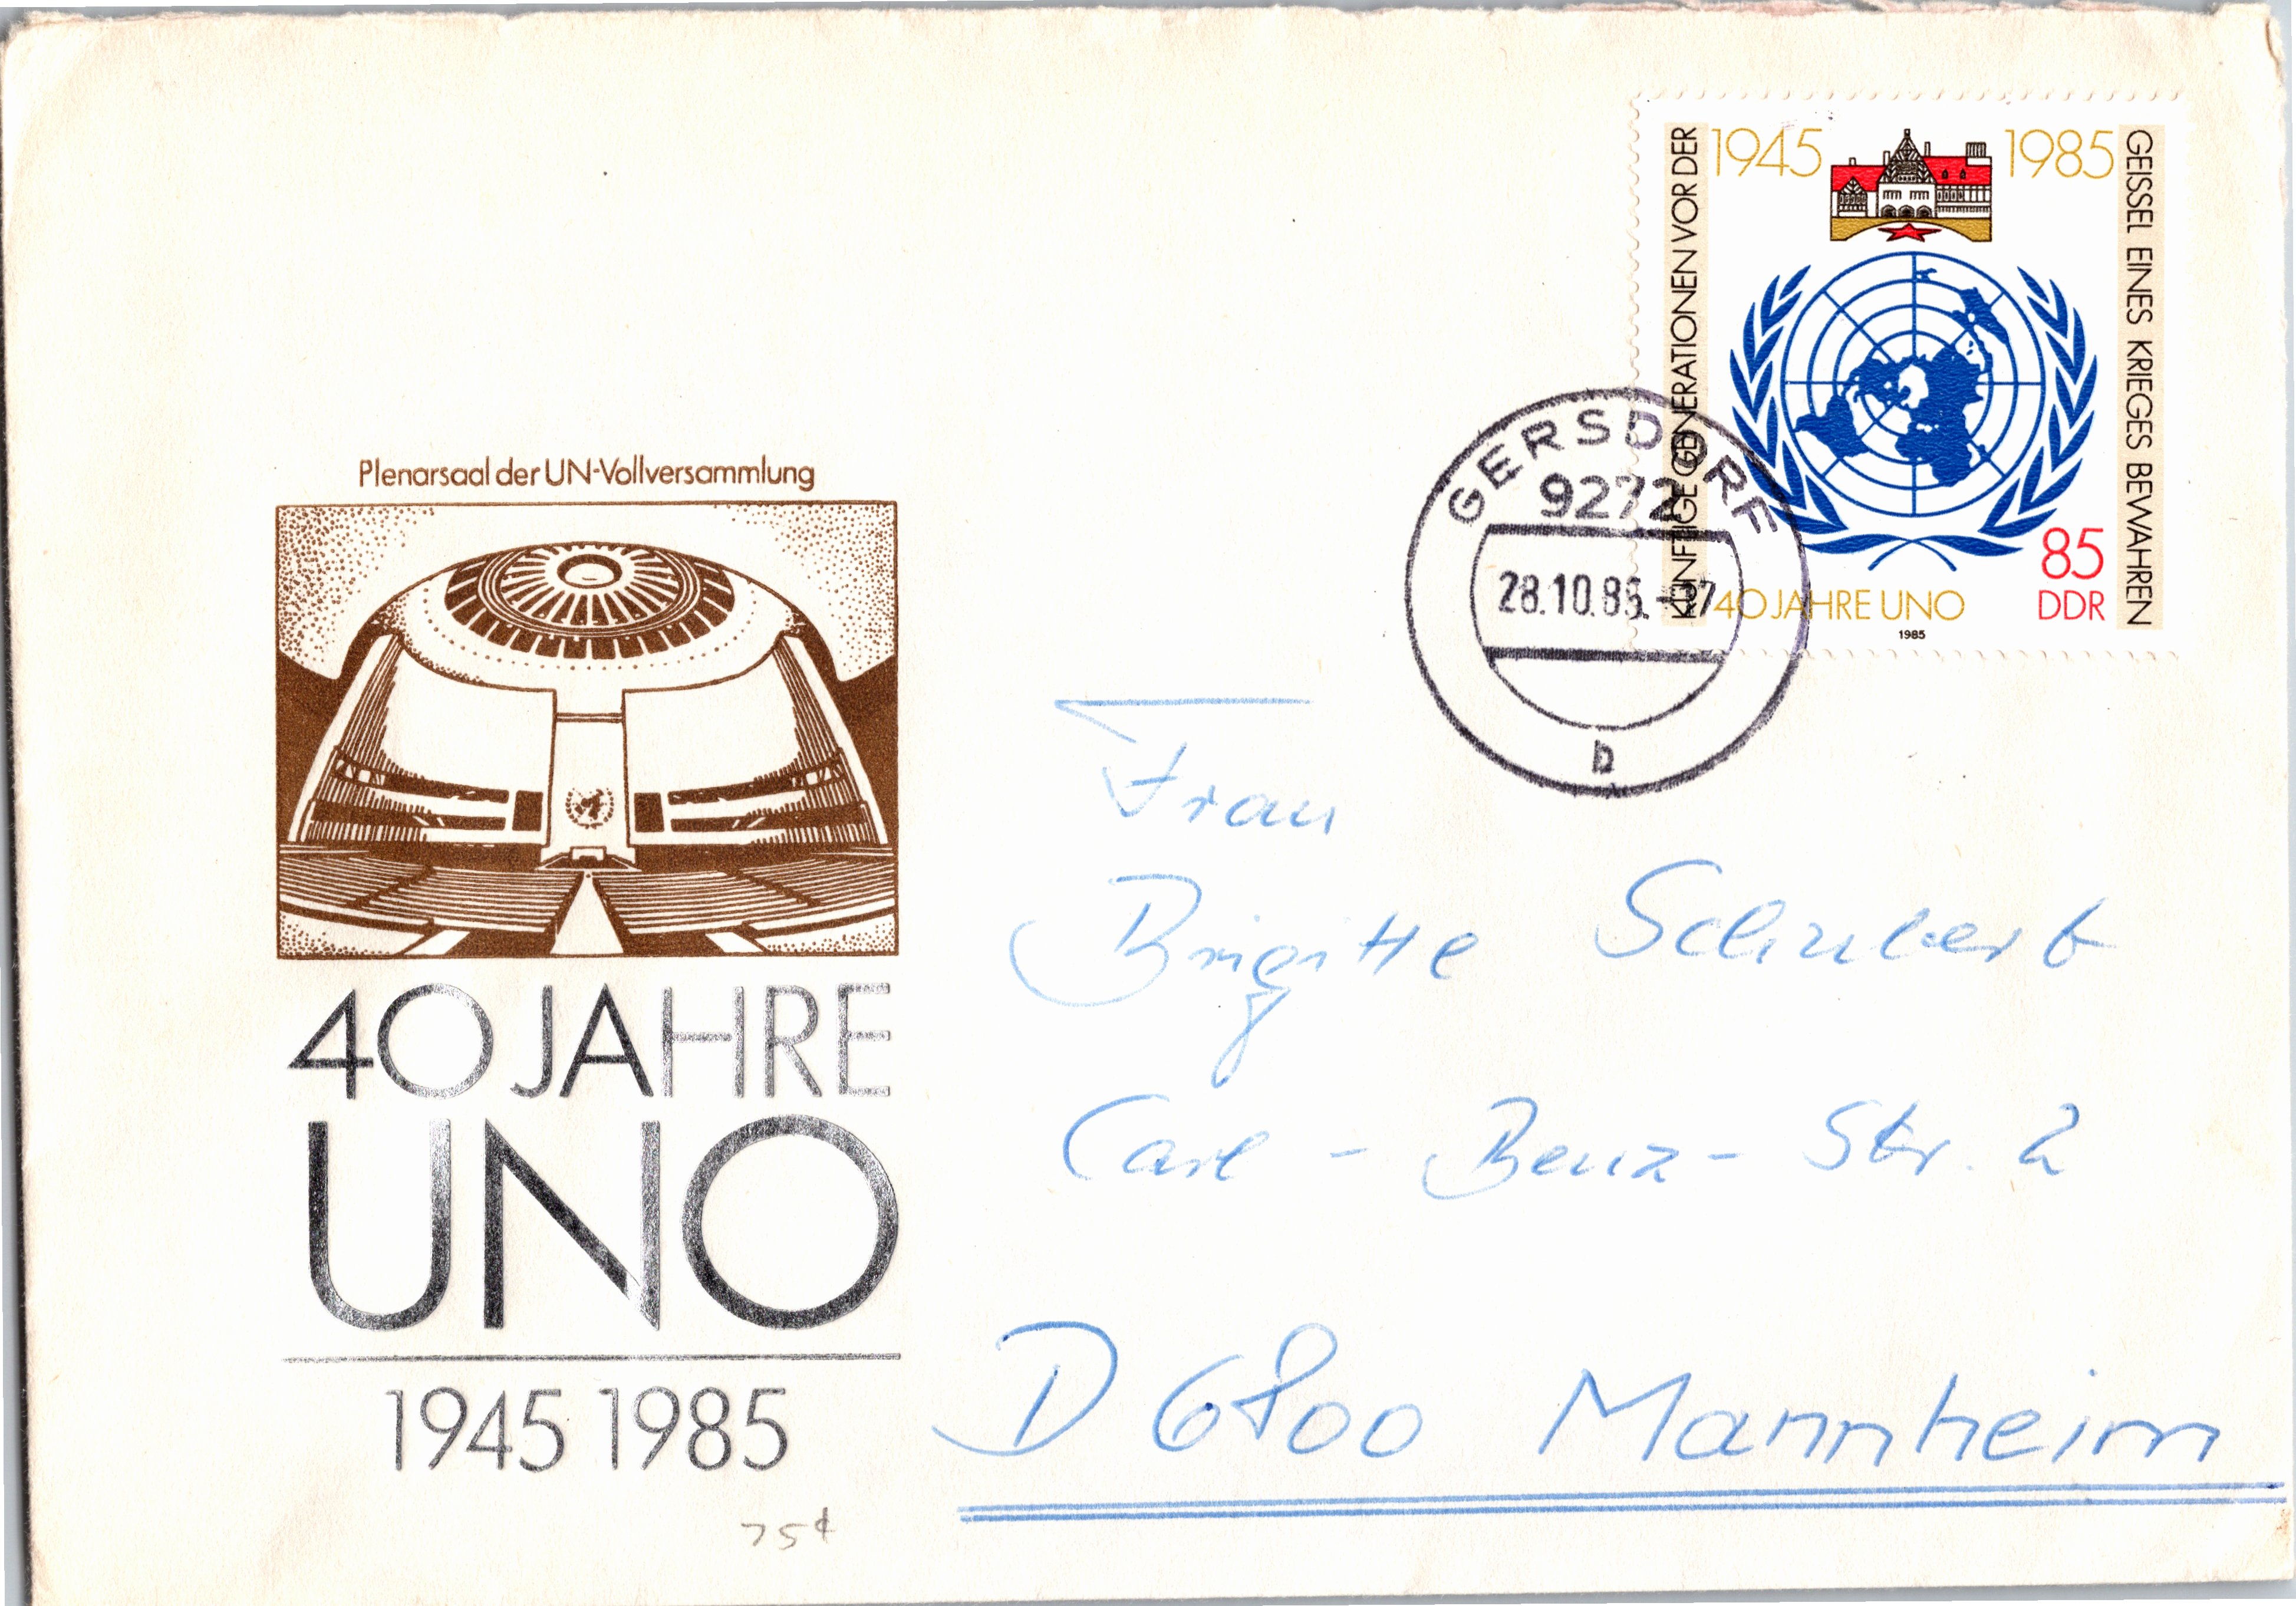 KÜNFTIGE GENERATIONEN VOR DER
1945 1985
GEISSEL EINES KRIEGES BEWAHREN
85
DDR
40 JAHRE UNO
1985
GERSDORF
9272
28.10.85.-17
b
Plenarsaal der UN-Vollversammlung
40 JAHRE
UNO
1945 1985
75¢
Frau
Brigitte Schubert
Carl-Benz-Str. 2
D 6800 Mannheim